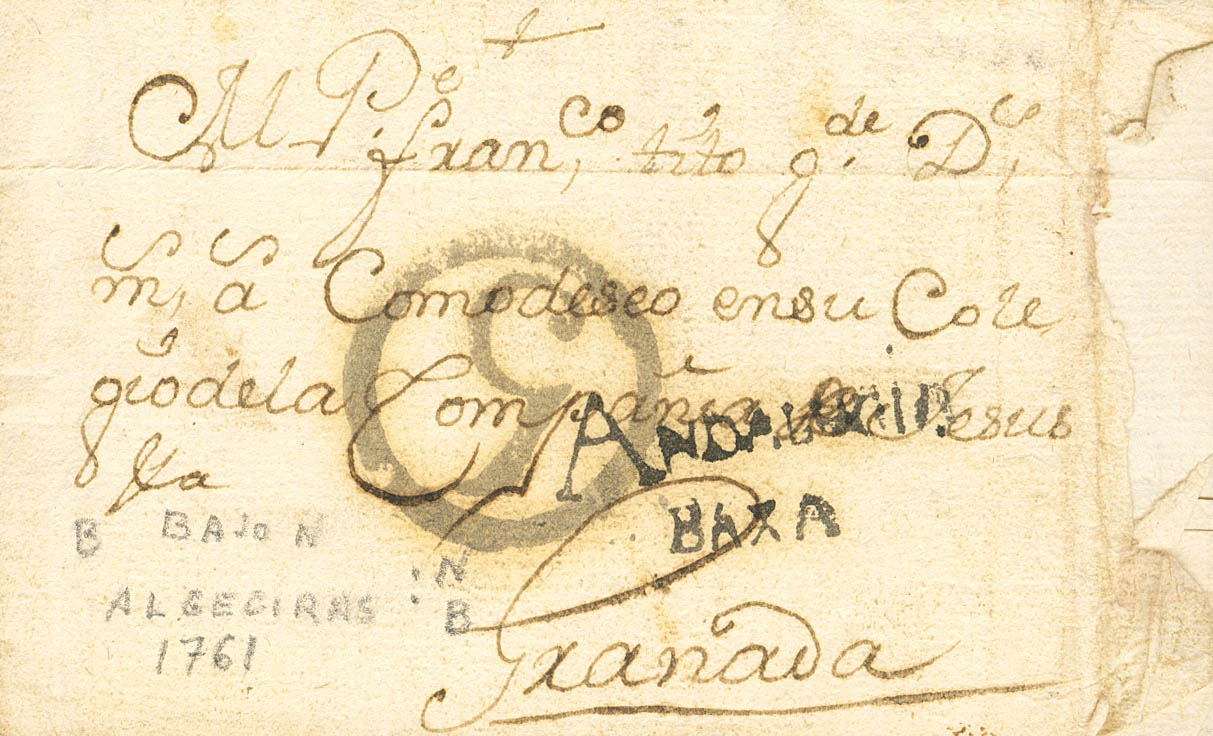 Al Pe Franco, tito g.de Ds,
ms, as Como deseo en su Cole
gio de la Compañia de Jesus
ANDALUCIA
BAXA
B BAJO N
N
ALGECIRAS : B
1761
Granada
5